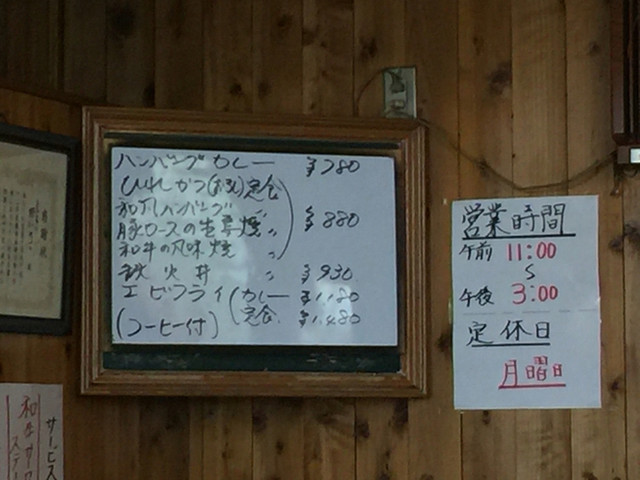 ハンバーグカレー ¥780
ひれかつ(おろし)定食
和風ハンバーグ 〃
豚ロースの生姜焼 〃 ¥880
和牛の風味焼 〃
鉄火丼 〃 ¥930
エビフライ(カレー ¥1,180
定食 ¥1,480
(コーヒー付)
営業時間
午前 11:00
〜
午後 3:00
定休日
月曜日
感謝状
サービス
和牛
ステー